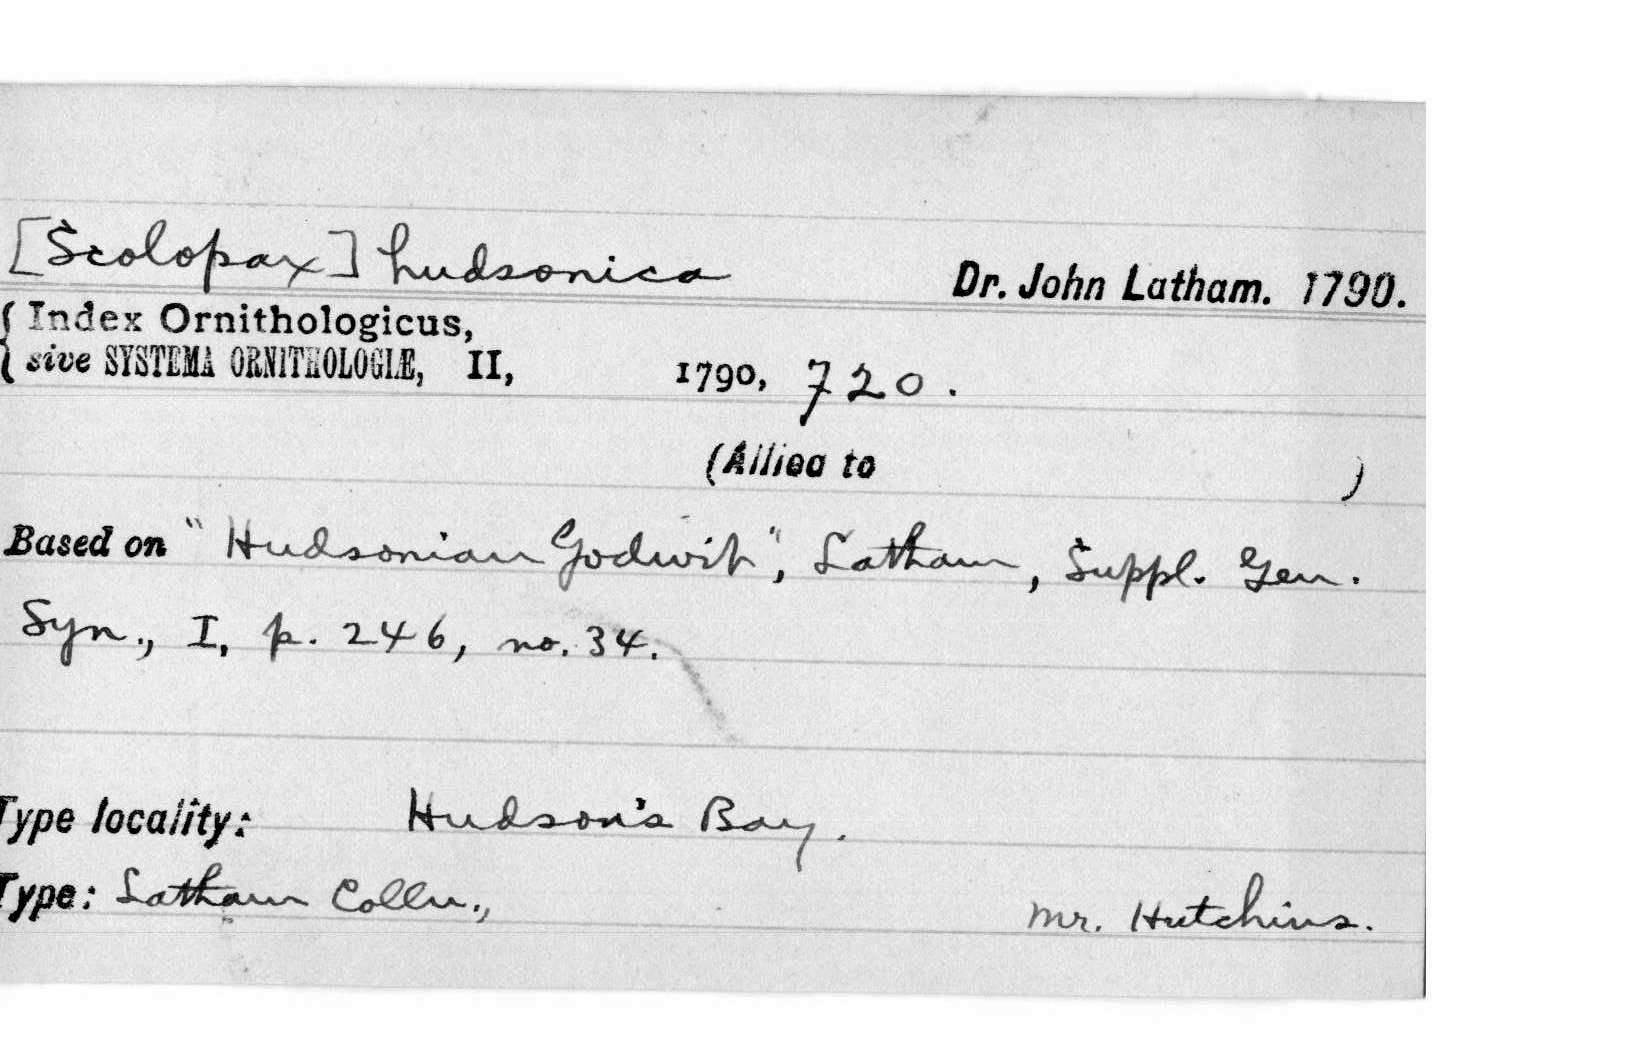 [Scolopax] hudsonica Dr. John Latham. 1790.
Index Ornithologicus,
sive SYSTEMA ORNITHOLOGIÆ, II, 1790, 720.
(Allied to )
Based on "Hudsonian Godwit", Latham, Suppl. Gen.
Syn., I, p. 246, no. 34.
Type locality: Hudson's Bay.
Type: Latham Colln., Mr. Hutchins.